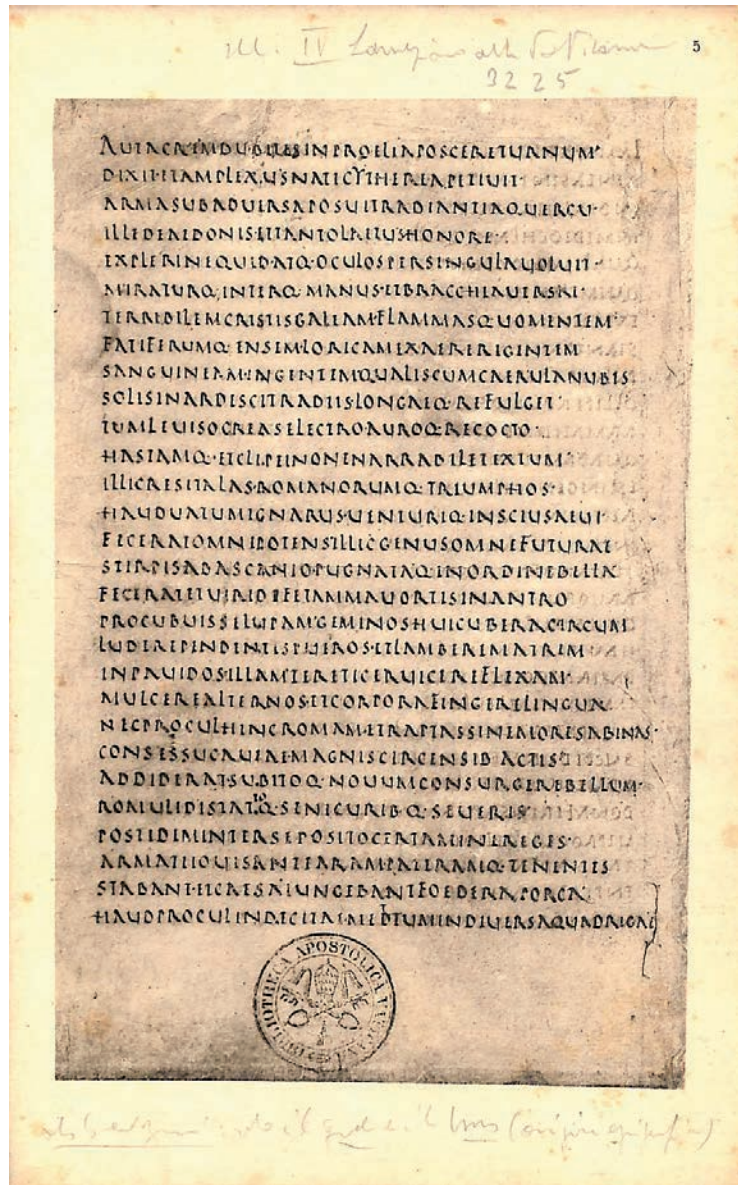 ill. IV
5
3225
AVTACREMDVBITESINPROELIAPOSCERETVRNVM
DIXITETAMPLEXVSNATICYTHEREAPETIVIT
ARMASVBADVERSAPOSVITRADIANTIAQVERCV
ILLEDEAEDONISETTANTOLAETVSHONORE
EXPLERINEQVIDATQ·OCVLOSPERSINGVLAVOLVIT
MIRATVRQ·INTERQ·MANVSETBRACCHIAVERSAT
TERRIBILEMCRISTISGALEAMFLAMMASQVOMENTEM
FATIFERVMQ·ENSEMLORICAMEXAERERIGENTEM
SANGVINEAMINGENTEMQVALISCVMCAERVLANVBIS
SOLISINARDESCITRADIISLONGAEQ·REFVLGET
TVMLEVISOCREASELECTROAVROQ·RECOCTO
HASTAMQ·ETCLIPEINONENARRABILETEXTVM
ILLICRESITALASROMANORVMQ·TRIVMPHOS
HAVDVATVMIGNARVSVENTVRIQ·INSCIVSAEVI
FECERATOMNIPOTENSILLICGENVSOMNEFVTVRAE
STIRPISABASCANIOPVGNATAQ·INORDINEBELLA
FECERATETVIRIDIFETAMMAVORTISINANTRO
PROCVBVISSELVPAMGEMINOSHVICVBERACIRCVM
LVDEREPENDENTISPVEROSETLAMBEREMATREM
INPAVIDOSILLAMTERETICERVICEREFLEXAM
MVLCEREALTERNOSETCORPORAFINGERELINGVA
NECPROCVLHINCROMAMETRAPTASSINEMORESABINAS
CONSESSVCAVEAEMAGNISCIRCENSIB·ACTIS
ADDIDERATSVBITOQ·NOVVMCONSVRGEREBELLVM
ROMVLIDISTATIOQ·SENICVRIBQ·SEVERIS
POSTIDEMINTERSEPOSITOCERTAMINEREGES
ARMATIIOVISANTEARAMPATERAMQ·TENENTES
STABANTETCAESAIVNGEBANTFOEDERAPORCA
HAVDPROCVLINDECITAEMETTVMINDIVERSAQVADRIGAE
BIBLIOTHECA APOSTOLICA VATICANA